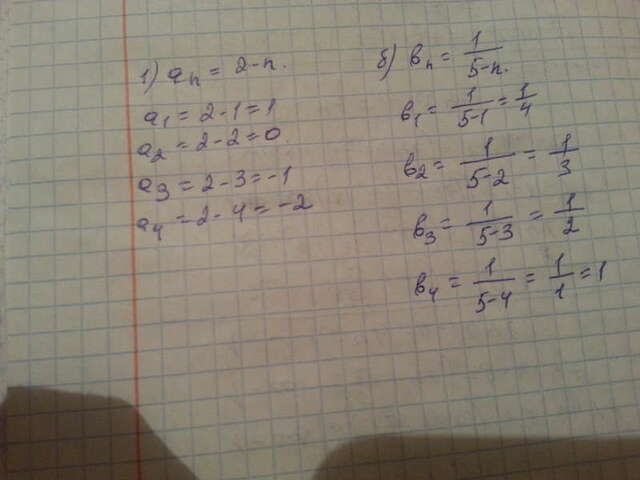 1) aₙ = 2-n.
a₁ = 2-1=1
a₂ = 2-2=0
a₃ = 2-3=-1
a₄ = 2-4=-2
б) вₙ = 1/5-n.
в₁ = 1/5-1 = 1/4
в₂ = 1/5-2 = 1/3
в₃ = 1/5-3 = 1/2
в₄ = 1/5-4 = 1/1 = 1